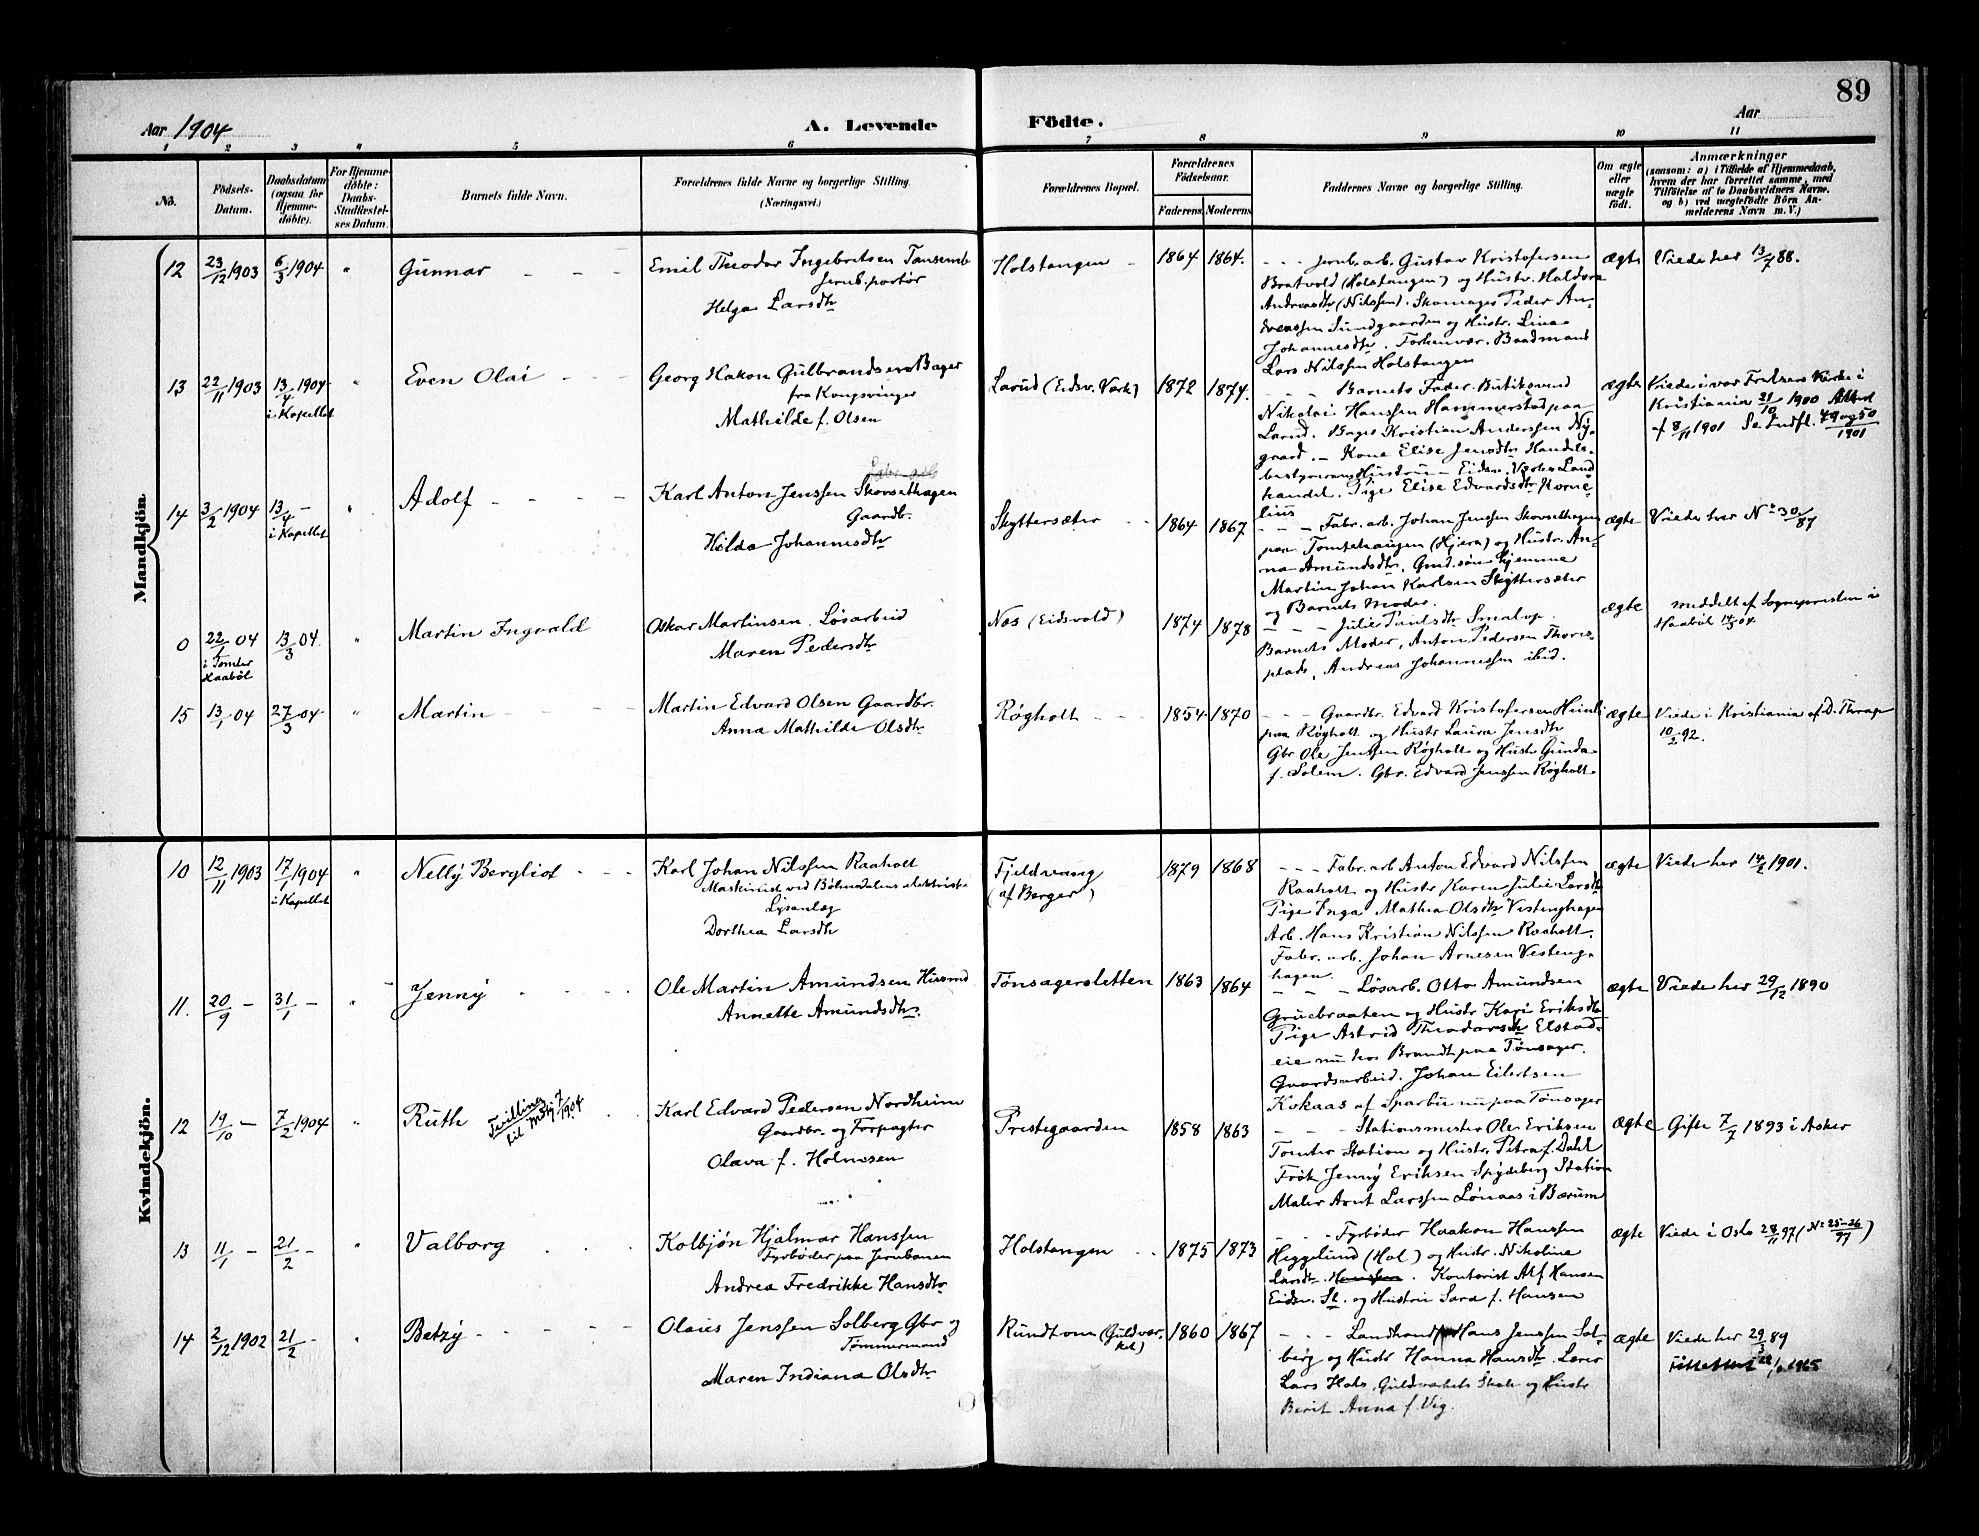 89
Aar 1904
A. Levende Födte.
Aar
1 2 3 " 5 6 7 8 9 10 11
No.
Födsels-Datum.
Daabsdatum (ogsaa for Hjemme-döbte).
For Hjemme-döbte: Daabs-Stadfæstel-ses Datum.
Barnets fulde Navn.
Forældrenes fulde Navne og borgerlige Stilling.
(Næringsvei.)
Forældrenes Bopæl.
Forældrenes Födselsaar.
Faderens Moderens
Faddernes Navne og borgerlige Stilling.
Om ægte eller uægte födt.
Anmærkninger
(saasom: a) i Tilfælde af Hjemmedaab,
hvem der har forrettet samme, med
Tilföielse af to Daabsvidners Navne.
og b) ved uægtefödte Börn An-
melderens Navn m. V.)
Mandkjön.
12 23/12 1903 6/3 1904 " Gunnar
Emil Theodor Ingebritsen Tansemb
Jernb.portør
Helga Larsdtr
Holstangen 1864 1864.
Jernb.arb. Gustav Kristofersen
Bratvold (Holstangen) og Hustr. Haldora
Andreasdtr (Nilssen). Skomager Peder An-
dreassen Sundgaarden og Hustr. Lina
Johannesdtr. Forhenvær. Baadmand
Lars Nilssen Holstangen
ægte Viede her 13/7 88.
13 22/11 1903 13/4 1904 i Kapellet " Even Olai
Georg Hakon Gulbrandsen Bager
fra Kongsvinger
Mathilde f. Olsen
Larud (Eidsv. Værk) 1872 1874.
Barnets Fader. Butiksvend
Nikolai Hanssen Hammerstad paa
Larud. Bager Kristian Anderssen Ny-
gaard. – Kone Elise Jensdtr Handels-
bestyrerens Hustru – Eidsv. Værks Land
handel. Pige Elise Edvardsdtr Korne-
lius
ægte Viede i vor Frelsers Kirke i
Kristiania 21/10 1900 Attest
af 8/11 1901 Se Indfl. 49 og 50/1901
14 3/2 1904 13/4 – i Kapellet " Adolf
Fabr. arb
Karl Anton Jenssen Skovsethagen
Gaardbr.
Hilda Johannesdtr
Skyttersæter 1864 1867
Fabr. arb. Johan Jenssen Skovsethagen
paa Tomtehaugen (Hjera) og Hustr. An-
na Amundsdtr, Gmd.søn hjemme
Martin Johan Karlsen Skyttersæter
og Barnets Moder.
ægte Viede her No 30/87
0 22/1 04 i Tomter Haabøl 13/3 04. " Martin Ingvald
Oskar Martinsen. Løsarbeid
Maren Pedersdtr
Nas (Eidsvold) 1874 1878
Julie Paulsdtr Smalop.
Barnets Moder, Anton Pedersen Thores-
plads, Andreas Johannessen ibid.
ægte meddelt af Sognepresten i
Haaböl 14/3 04
15 13/1 04 27/3 04 " Martin
Martin Edvard Olsen Gaardbr.
Anna Mathilde Olsdtr
Røgholt 1854 1870
Gaardbr. Edvard Kristofersen Heimli
paa Røgholt og Hustr Laura Jensdtr
Gbr Ole Jenssen Røgholt og Hustr Gunda
f. Solem. Gbr. Edvard Jenssen Røgholt.
ægte Viede i Kristiania af D. Thrap
10/2 92.
Kvindekjön.
10 12/11 1903 17/1 1904 i Kapellet " Nelly Bergliot
Karl Johan Nilssen Raaholt
Maskinist ved Bøhndalens elektriske
Lysanlæg
Dorthea Larsdtr
Fjeldvang
(af Berger)
1879 1868
Fabr. arb Anton Edvard Nilssen
Raaholt og Hustr Karen Julie Larsdtr
Pige Inga Mathea Olsdtr Vestenghagen
Arb. Hans Kristian Nilssen Raaholt.
Fabr. arb. Johan Arnesen Vesteng-
hagen.
ægte Viede her 14/2 1901.
11. 20/9 – 31/1 – " Jenny
Ole Martin Amundsen Husmd
Annette Amundsdtr.
Tønsagersletten 1863 1864
Løsarb. Otto Amundsen
Gruebraaten og Hustr Kari Eriksdtr
Pige Astrid Theodorsdtr Elstad-
eie nu hos Brandt paa Tønsager.
Gaardsarbeid. Johan Eilertsen
Kokaas af Sparbu nu paa Tønsager
ægte Viede her 29/12 1890
12 19/10 – 7/2 1904 " Ruth
Tvilling
til Mskj 7/1904
Karl Edvard Pedersen Nordheim
Gaardbr. og Forpagter
Olava f. Holmesen
Prestegaarden 1858 1863
Stationsmester Ole Eriksen
Tomter Station og Hustr. Petra f. Dahl
Frök Jenny Eriksen Spydeberg Station
Maler Arnt Larssen Lønaas i Bærum
ægte Gifte 7/7 1893 i Asker
13 11/1 – 21/2 – " Valborg
Kolbjøn Hjalmar Hanssen
Fyrbøder paa Jernbanen
Andrea Fredrikke Hansdtr
Holstangen 1875 1873
Fyrbøder Haakon Hanssen
Heggelund (Hol) og Hustr. Nikoline
Larsdtr. Hanssen. Kontorist Alf Hansen
Eidsv. St. og Hustru Sara f. Hansen
ægte Viede i Oslo 28/11 97 (No 25-26/97)
14 2/12 1902 21/2 – " Betzy
Olaus Jenssen Solberg Gbr og
Tömmermand
Maren Indiana Olsdtr
Rundtom (Guldvær-
ket)
1860 1867
Landhand. Hans Jenssen Sol-
berg og Hustr Hanna Hansdtr. Lærer
Lars Hols, Guldværkets Skole og Hustr
Berit Anna f. Vig.
ægte Viede her 29/3 89